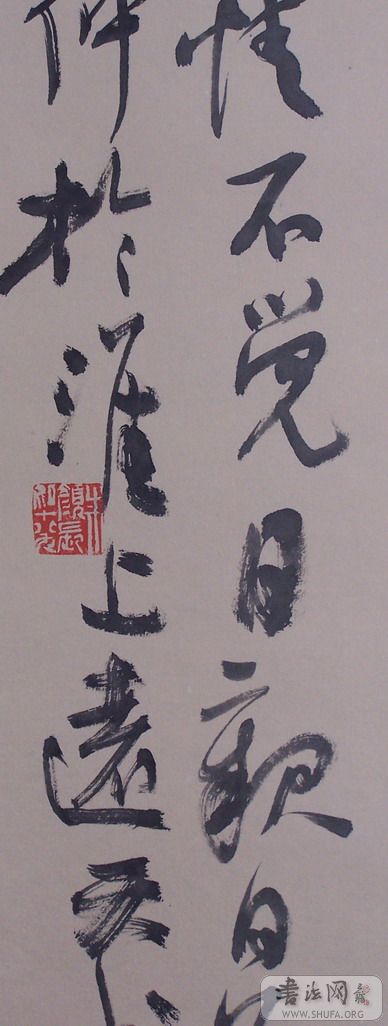 不覺日親日
仲於淮上遠
书法网
WWW.SHUFA.ORG